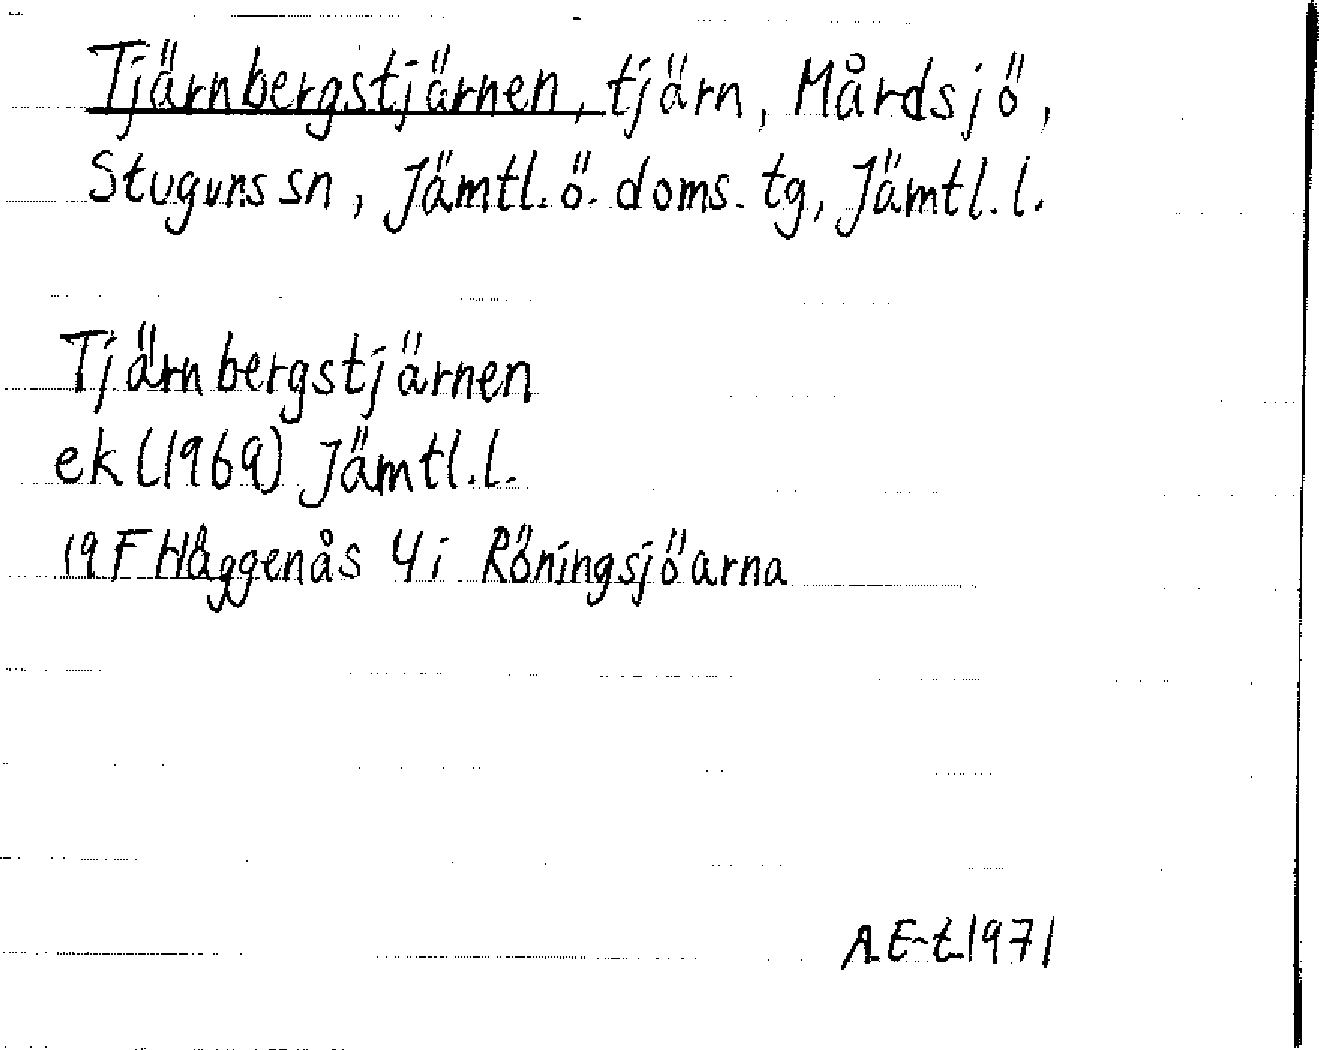 Tjärnbergstjärnen, tjärn, Mårdsjö,
Stuguns sn, Jämtl. ö. doms. tg, Jämtl. l.
Tjärnbergstjärnen
ek (1969) Jämtl. l.
19 F Häggenås 4 i Röningsjöarna
A. E-t 1971